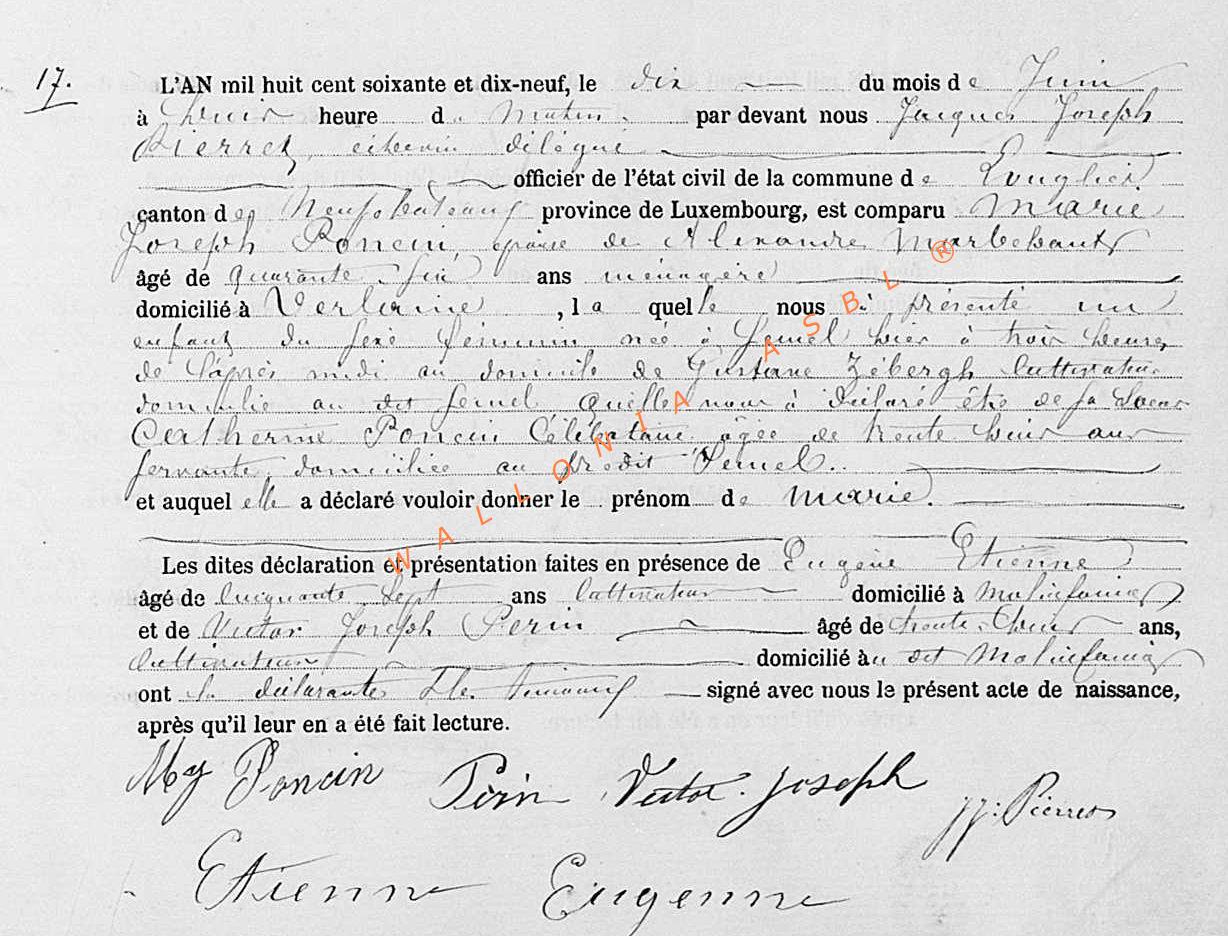 17.
L'AN mil huit cent soixante et dix-neuf, le dix du mois de Juin
à heure du Matin par devant nous Jacques Joseph
Pierret, échevin délégué
officier de l'état civil de la commune de Longlier
canton de Neufchateau province de Luxembourg, est comparu Marie
Joseph Poncin, épouse de Alexandre
âgé de quarante six ans ménagère
domicilié à Verlaine, la quelle nous à présenté un
enfant du sexe féminin née à Semel hier à trois heures
de l'après midi au domicile de Gustave Zébergh Cultivateur
domicilié au dit Semel quelle nous à déclaré être de sa Soeur
Catherine Poncin Célibataire âgée de trente ans
servante domiciliée au prédit Semel.
et auquel elle a déclaré vouloir donner le prénom de Marie.
Les dites déclaration et présentation faites en présence de Eugène Etienne
âgé de cinquante sept ans Cultivateur domicilié à Molinfaing
et de Victor Joseph Perin âgé de trente ans,
Cultivateur domicilié au dit Molinfaing
ont la déclarante & les temoins signé avec nous le présent acte de naissance,
après qu'il leur en a été fait lecture.
Poncin Perin Victor Joseph
JJ: Pierret
Etienne Eugenne
WALLONIA ASBL ®